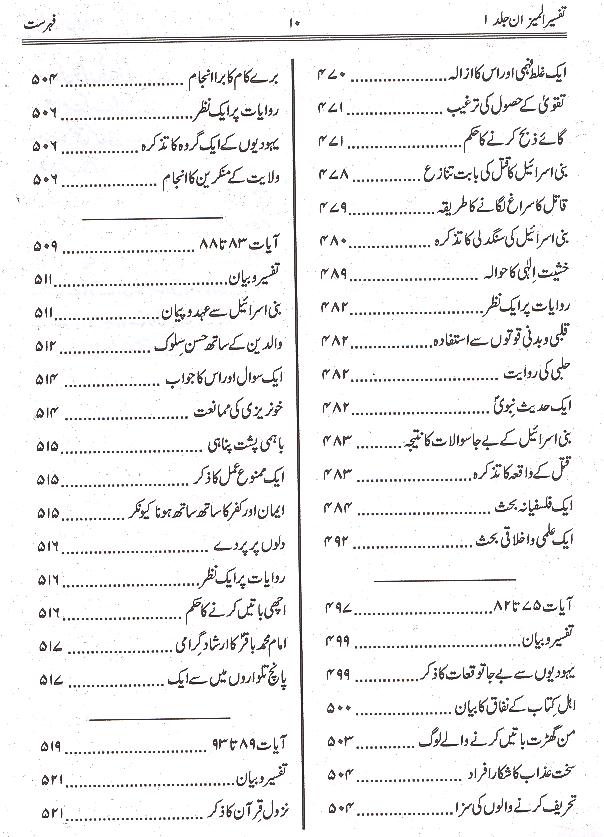 تفسیر المیزان جلد ۱
۱۰
فہرست
ایک غلط فہمی اور اس کا ازالہ ............ ۴۷۰
تقویٰ کے حصول کی ترغیب ............ ۴۷۱
گائے ذبح کرنے کا حکم ............ ۴۷۱
بنی اسرائیل کا قتل کی بابت تنازع ............ ۴۷۸
قاتل کا سراغ لگانے کا طریقہ ............ ۴۷۹
بنی اسرائیل کی سنگدلی کا تذکرہ ............ ۴۸۰
خشیت الٰہی کا حوالہ ............ ۴۸۹
روایات پر ایک نظر ............ ۴۸۲
قلبی و بدنی قوتوں سے استفادہ ............ ۴۸۲
حلبی کی روایت ............ ۴۸۲
ایک حدیث نبویؐ ............ ۴۸۲
بنی اسرائیل کے بے جا سوالات کا نتیجہ ............ ۴۸۳
قتل کے واقعہ کا تذکرہ ............ ۴۸۳
ایک فلسفیانہ بحث ............ ۴۸۴
ایک علمی و اخلاقی بحث ............ ۴۹۲
آیات ۷۵ تا ۸۲ ............ ۴۹۷
تفسیر و بیان ............ ۴۹۹
یہودیوں سے بے جا توقعات کا ذکر ............ ۴۹۹
اہل کتاب کے نفاق کا بیان ............ ۵۰۰
من گھڑت باتیں کرنے والے لوگ ............ ۵۰۳
سخت عذاب کا شکار افراد ............ ۵۰۴
تحریف کرنے والوں کی سزا ............ ۵۰۴
برے کام کا برا انجام ............ ۵۰۴
روایات پر ایک نظر ............ ۵۰۶
یہودیوں کے ایک گروہ کا تذکرہ ............ ۵۰۶
ولایت کے منکرین کا انجام ............ ۵۰۶
آیات ۸۳ تا ۸۸ ............ ۵۰۹
تفسیر و بیان ............ ۵۱۱
بنی اسرائیل سے عہد و پیمان ............ ۵۱۱
والدین کے ساتھ حسن سلوک ............ ۵۱۲
ایک سوال اور اس کا جواب ............ ۵۱۴
خونریزی کی ممانعت ............ ۵۱۴
باہمی پشت پناہی ............ ۵۱۵
ایک ممنوع عمل کا ذکر ............ ۵۱۵
ایمان اور کفر کا ساتھ ساتھ ہونا کیونکر ............ ۵۱۵
دلوں پر پردے ............ ۵۱۶
روایات پر ایک نظر ............ ۵۱۶
اچھی باتیں کرنے کا حکم ............ ۵۱۶
امام محمد باقرؑ کا ارشاد گرامی ............ ۵۱۷
پانچ تلواروں میں سے ایک ............ ۵۱۷
آیات ۸۹ تا ۹۳ ............ ۵۱۹
تفسیر و بیان ............ ۵۲۱
نزول قرآن کا ذکر ............ ۵۲۱